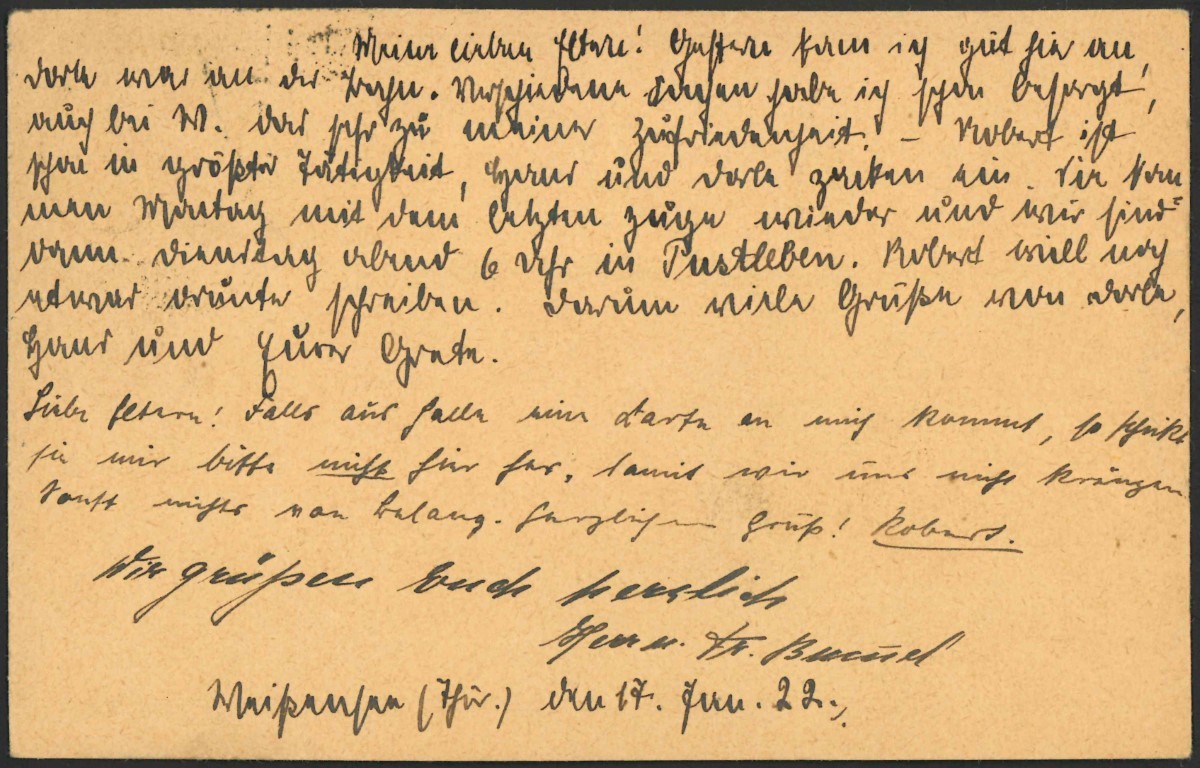 Meine lieben Eltern! Gestern kam ich gut hier an,
Dorle war an der Bahn. Verschiedene Sachen habe ich schon besorgt,
auch bei W. das sehr zu meiner Zufriedenheit. – Robert ist
schon in größter Tätigkeit, Hans und Dorle packen ein. Sie kom
men Montag mit dem letzten Zuge wieder und wir sind
dann Dienstag abend 6 Uhr in Pustleben. Robert will noch
etwas drunter schreiben. Darum viele Grüße von Dorle,
Hans und Eurer Grete.
Liebe Eltern! Falls aus Halle eine Karte an mich kommt, so schickt
sie mir bitte nicht hier her, damit wir uns nicht kreuzen
Sonst nichts von Belang. Herzlichen Gruß! Robert.
Wir grüßen Euch herzlich
Herm. Fr.
Weißensee (Thür.) den 17. Jun. 22.